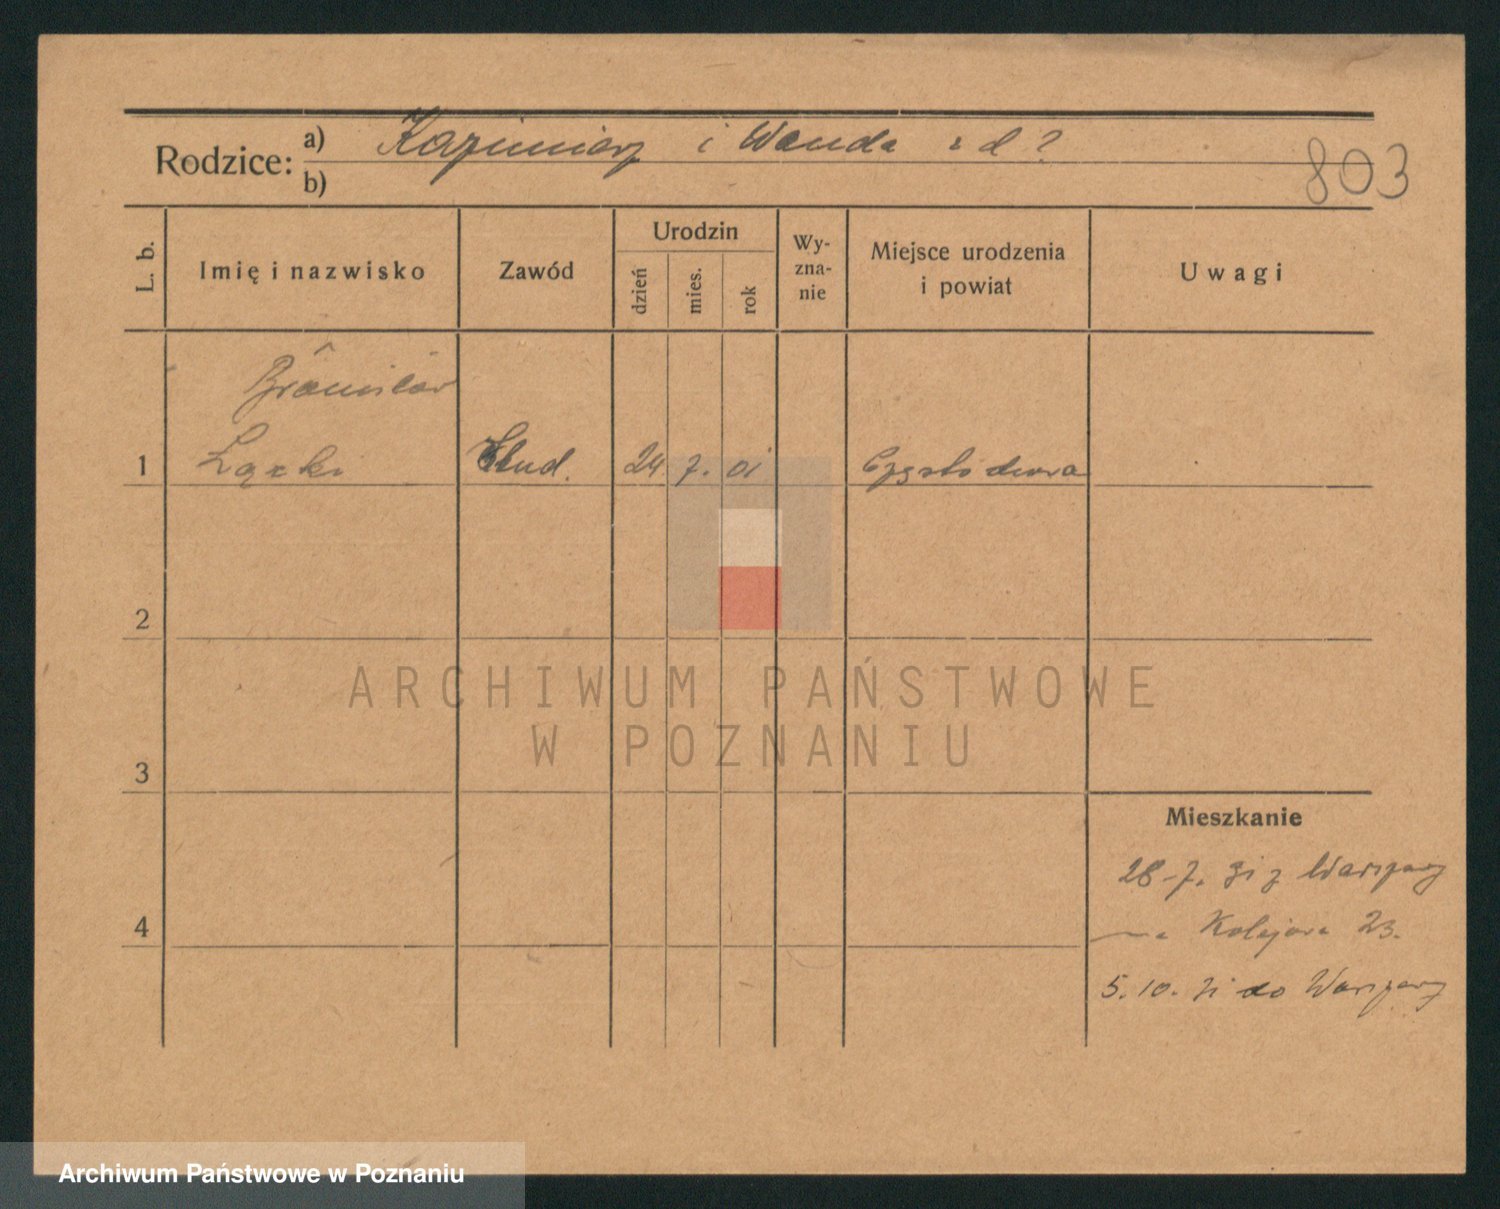 Rodzice: a) Kazimierz i Wanda z d ?
b)
803
L. b.
Imię i nazwisko
Zawód
Urodzin
dzień
mies.
rok
Wy-
zna-
nie
Miejsce urodzenia
i powiat
Uwagi
Bronisław
1 Łącki Stud. 24 7. 01
2
3
4
Mieszkanie
28-7. z Warszawy
Kolejowa 23.
5.10. do Warszawy
ARCHIWUM PAŃSTWOWE
W POZNANIU
Archiwum Państwowe w Poznaniu